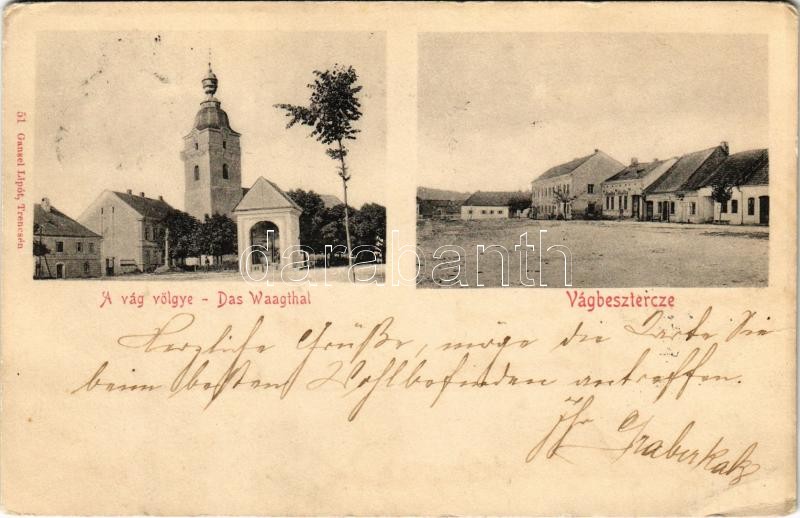 51 Gansel Lipót, Trencsén
A vág völgye - Das Waagthal
Vágbesztercze
darabanth
Herzliche Grüße, möge die Carte Sie
beim besten Wohlbefinden antreffen.
Ihr